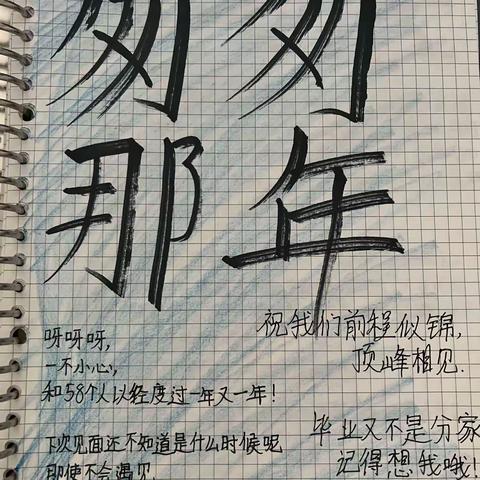 匆匆
那年
呀呀呀,
一不小心,
和58个人以轻度过一年又一年!
下次见面还不知道是什么时候呢
即使不会遇见
祝我们前程似锦,
顶峰相见.
毕业又不是分家
记得想我哦!